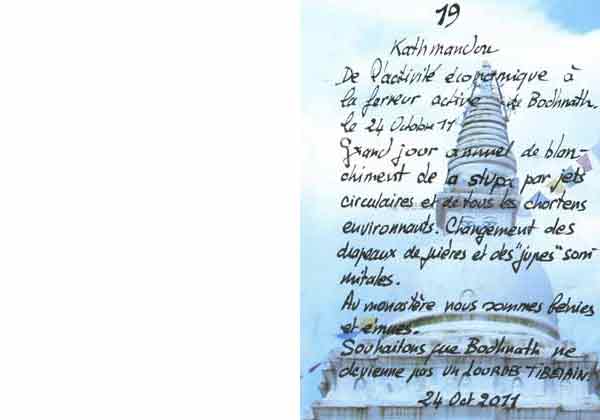 19
Kathmandou
De l'activité économique à
la ferveur active de Bodhnath.
le 24 Octobre 11
Grand jour annuel de blan-
chiment de la stupa par jets
circulaires et de tous les chortens
environnants. Changement des
drapeaux de prières et des "jupes" som-
mitales.
Au monastère nous sommes bénies
et émues.
Souhaitons que Bodhnath ne
devienne pas un LOURDES TIBETAIN!
24 Oct 2011